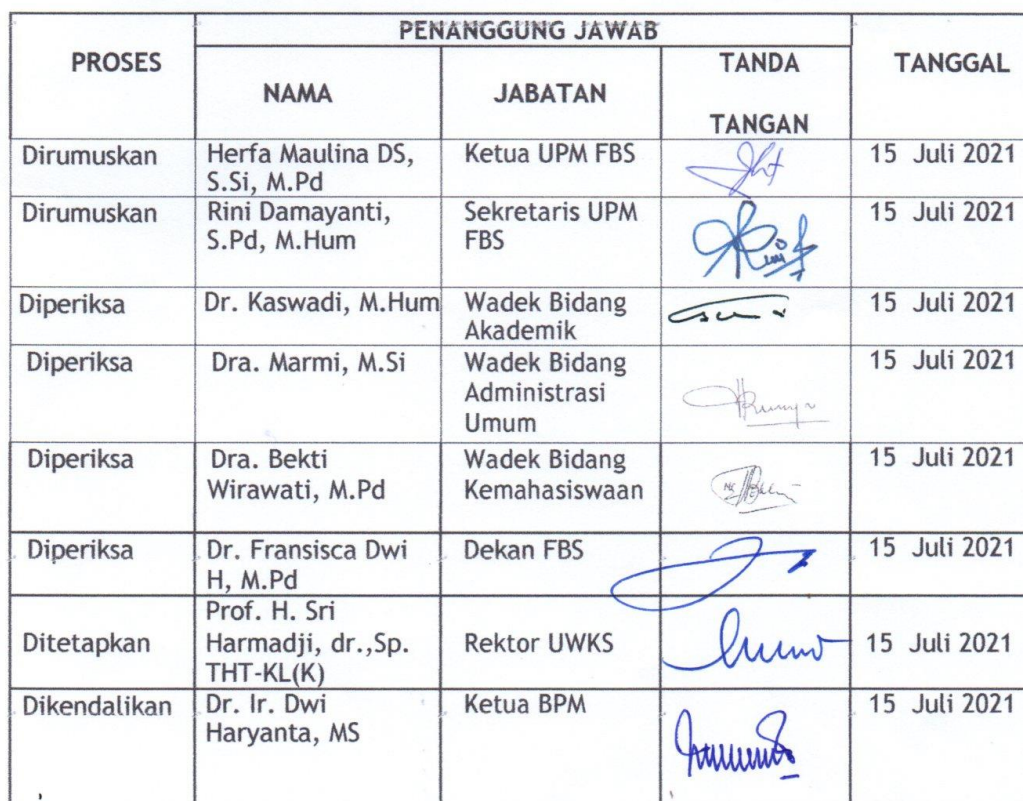 PROSES
PENANGGUNG JAWAB
TANGGAL
NAMA
JABATAN
TANDA
TANGAN
Dirumuskan
Herfa Maulina DS,
S.Si, M.Pd
Ketua UPM FBS
15 Juli 2021
Dirumuskan
Rini Damayanti,
S.Pd, M.Hum
Sekretaris UPM
FBS
15 Juli 2021
Diperiksa
Dr. Kaswadi, M.Hum
Wadek Bidang
Akademik
15 Juli 2021
Diperiksa
Dra. Marmi, M.Si
Wadek Bidang
Administrasi
Umum
15 Juli 2021
Diperiksa
Dra. Bekti
Wirawati, M.Pd
Wadek Bidang
Kemahasiswaan
15 Juli 2021
Diperiksa
Dr. Fransisca Dwi
H, M.Pd
Dekan FBS
15 Juli 2021
Ditetapkan
Prof. H. Sri
Harmadji, dr.,Sp.
THT-KL(K)
Rektor UWKS
15 Juli 2021
Dikendalikan
Dr. Ir. Dwi
Haryanta, MS
Ketua BPM
15 Juli 2021